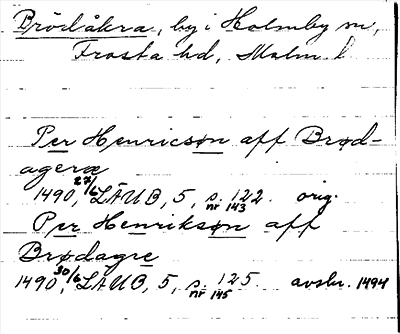 Brödåkra, by i Holmby sn,
Frosta hd, Malm. l
Per Henricsøn aff Brød-
ageræ
1490 27/6 LÄUB, 5, s. 122. orig.
nr 143
Per Henriksøn aff
Brødagre
1490 30/6 LÄUB, 5, s. 125. avskr. 1494
nr 145